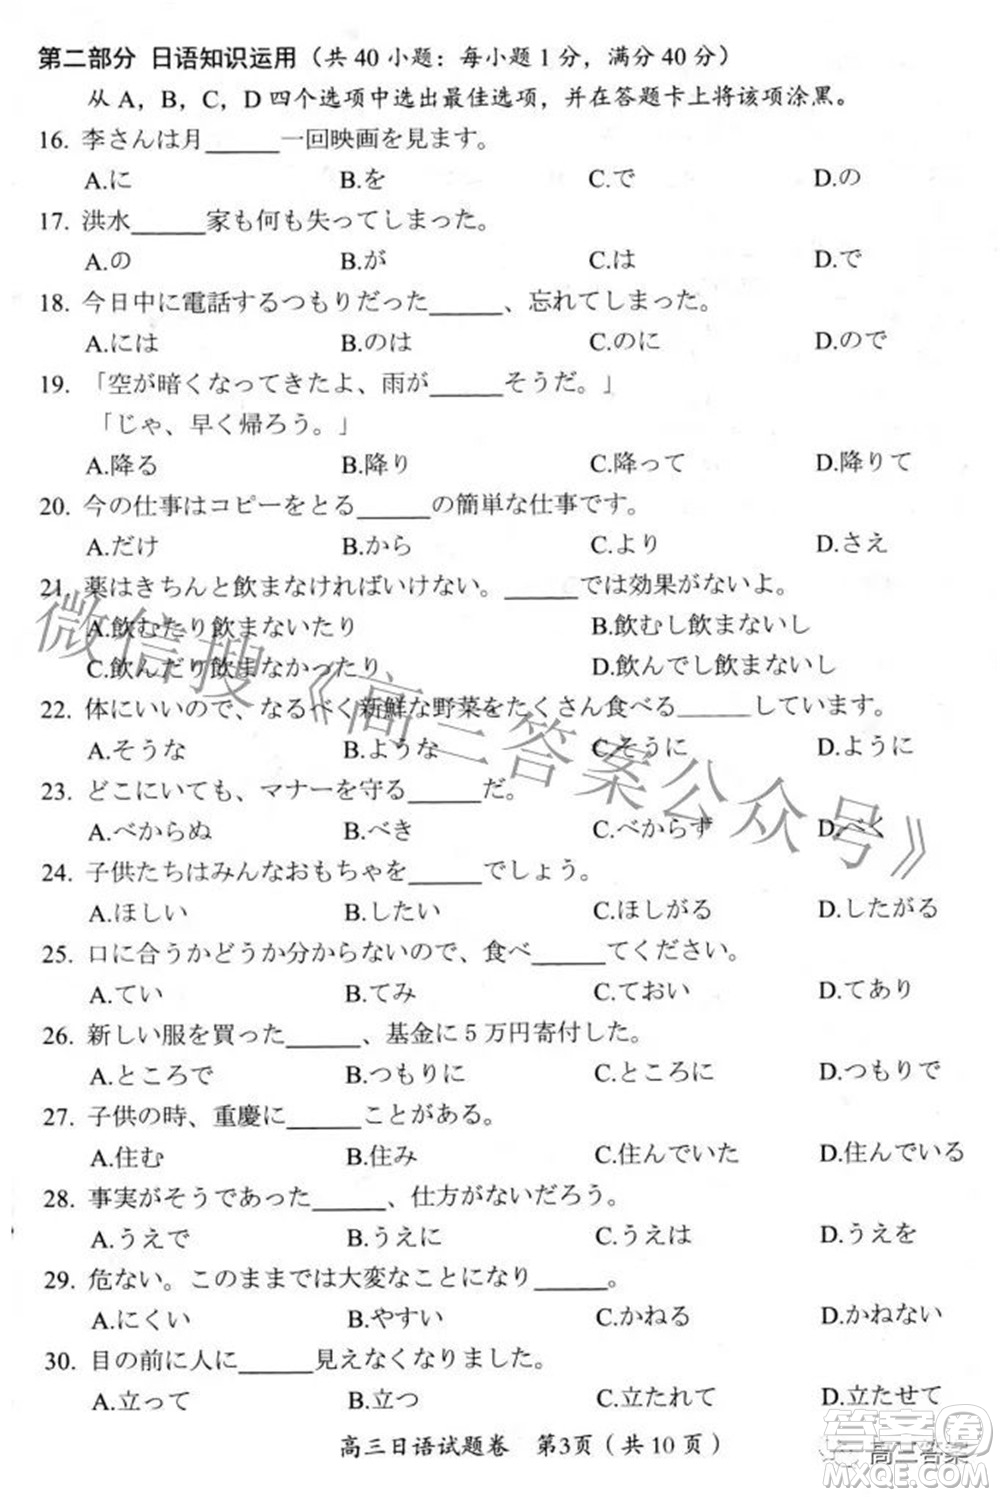 第二部分 日语知识运用（共 40 小题：每小题 1 分，满分 40 分）
从 A，B，C，D 四个选项中选出最佳选项，并在答题卡上将该项涂黑。
16. 李さんは月______一回映画を見ます。
A.に B.を C.で D.の
17. 洪水______家も何も失ってしまった。
A.の B.が C.は D.で
18. 今日中に電話するつもりだった______、忘れてしまった。
A.には B.のは C.のに D.ので
19. 「空が暗くなってきたよ、雨が______そうだ。」
「じゃ、早く帰ろう。」
A.降る B.降り C.降って D.降りて
20. 今の仕事はコピーをとる______の簡単な仕事です。
A.だけ B.から C.より D.さえ
21. 薬はきちんと飲まなければいけない。______では効果がないよ。
A.飲むたり飲まないたり B.飲むし飲まないし
C.飲んだり飲まなかったり D.飲んでし飲まないし
22. 体にいいので、なるべく新鮮な野菜をたくさん食べる______しています。
A.そうな B.ような C.そうに D.ように
23. どこにいても、マナーを守る______だ。
A.べからぬ B.べき C.べからず D.べく
24. 子供たちはみんなおもちゃを______でしょう。
A.ほしい B.したい C.ほしがる D.したがる
25. 口に合うかどうか分からないので、食べ______てください。
A.てい B.てみ C.ておい D.てあり
26. 新しい服を買った______、基金に 5 万円寄付した。
A.ところで B.つもりに C.ところに D.つもりで
27. 子供の時、重慶に______ことがある。
A.住む B.住み C.住んでいた D.住んでいる
28. 事実がそうであった______、仕方がないだろう。
A.うえで B.うえに C.うえは D.うえを
29. 危ない。このままでは大変なことになり______。
A.にくい B.やすい C.かねる D.かねない
30. 目の前に人に______見えなくなりました。
A.立って B.立つ C.立たれて D.立たせて
高三日语试题卷 第3页（共 10 页）
微信搜《高三答案公众号》
答案卷
MXQE.COM
高三答案